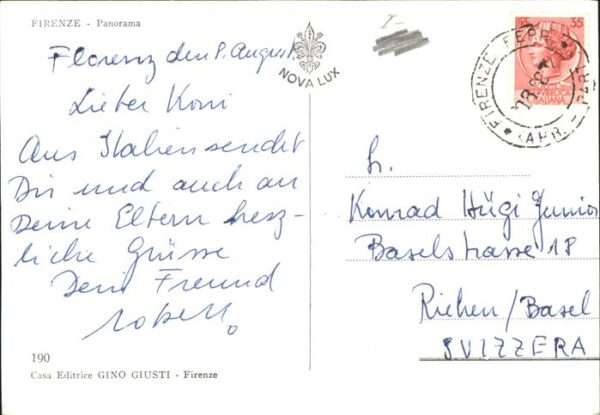 FIRENZE - Panorama
Florenz den 8. August.
Lieber Koni
Aus Italien sendet
Dir und auch an
Deine Eltern herz-
liche Grüsse
Dein Freund
190
Casa Editrice GINO GIUSTI - Firenze
NOVA LUX
35
ITALIANA
FIRENZE FERR.
ARR. - PAR
h.
Konrad Hügi Junior
Baselstrasse 18
Riehen/Basel
SVIZZERA